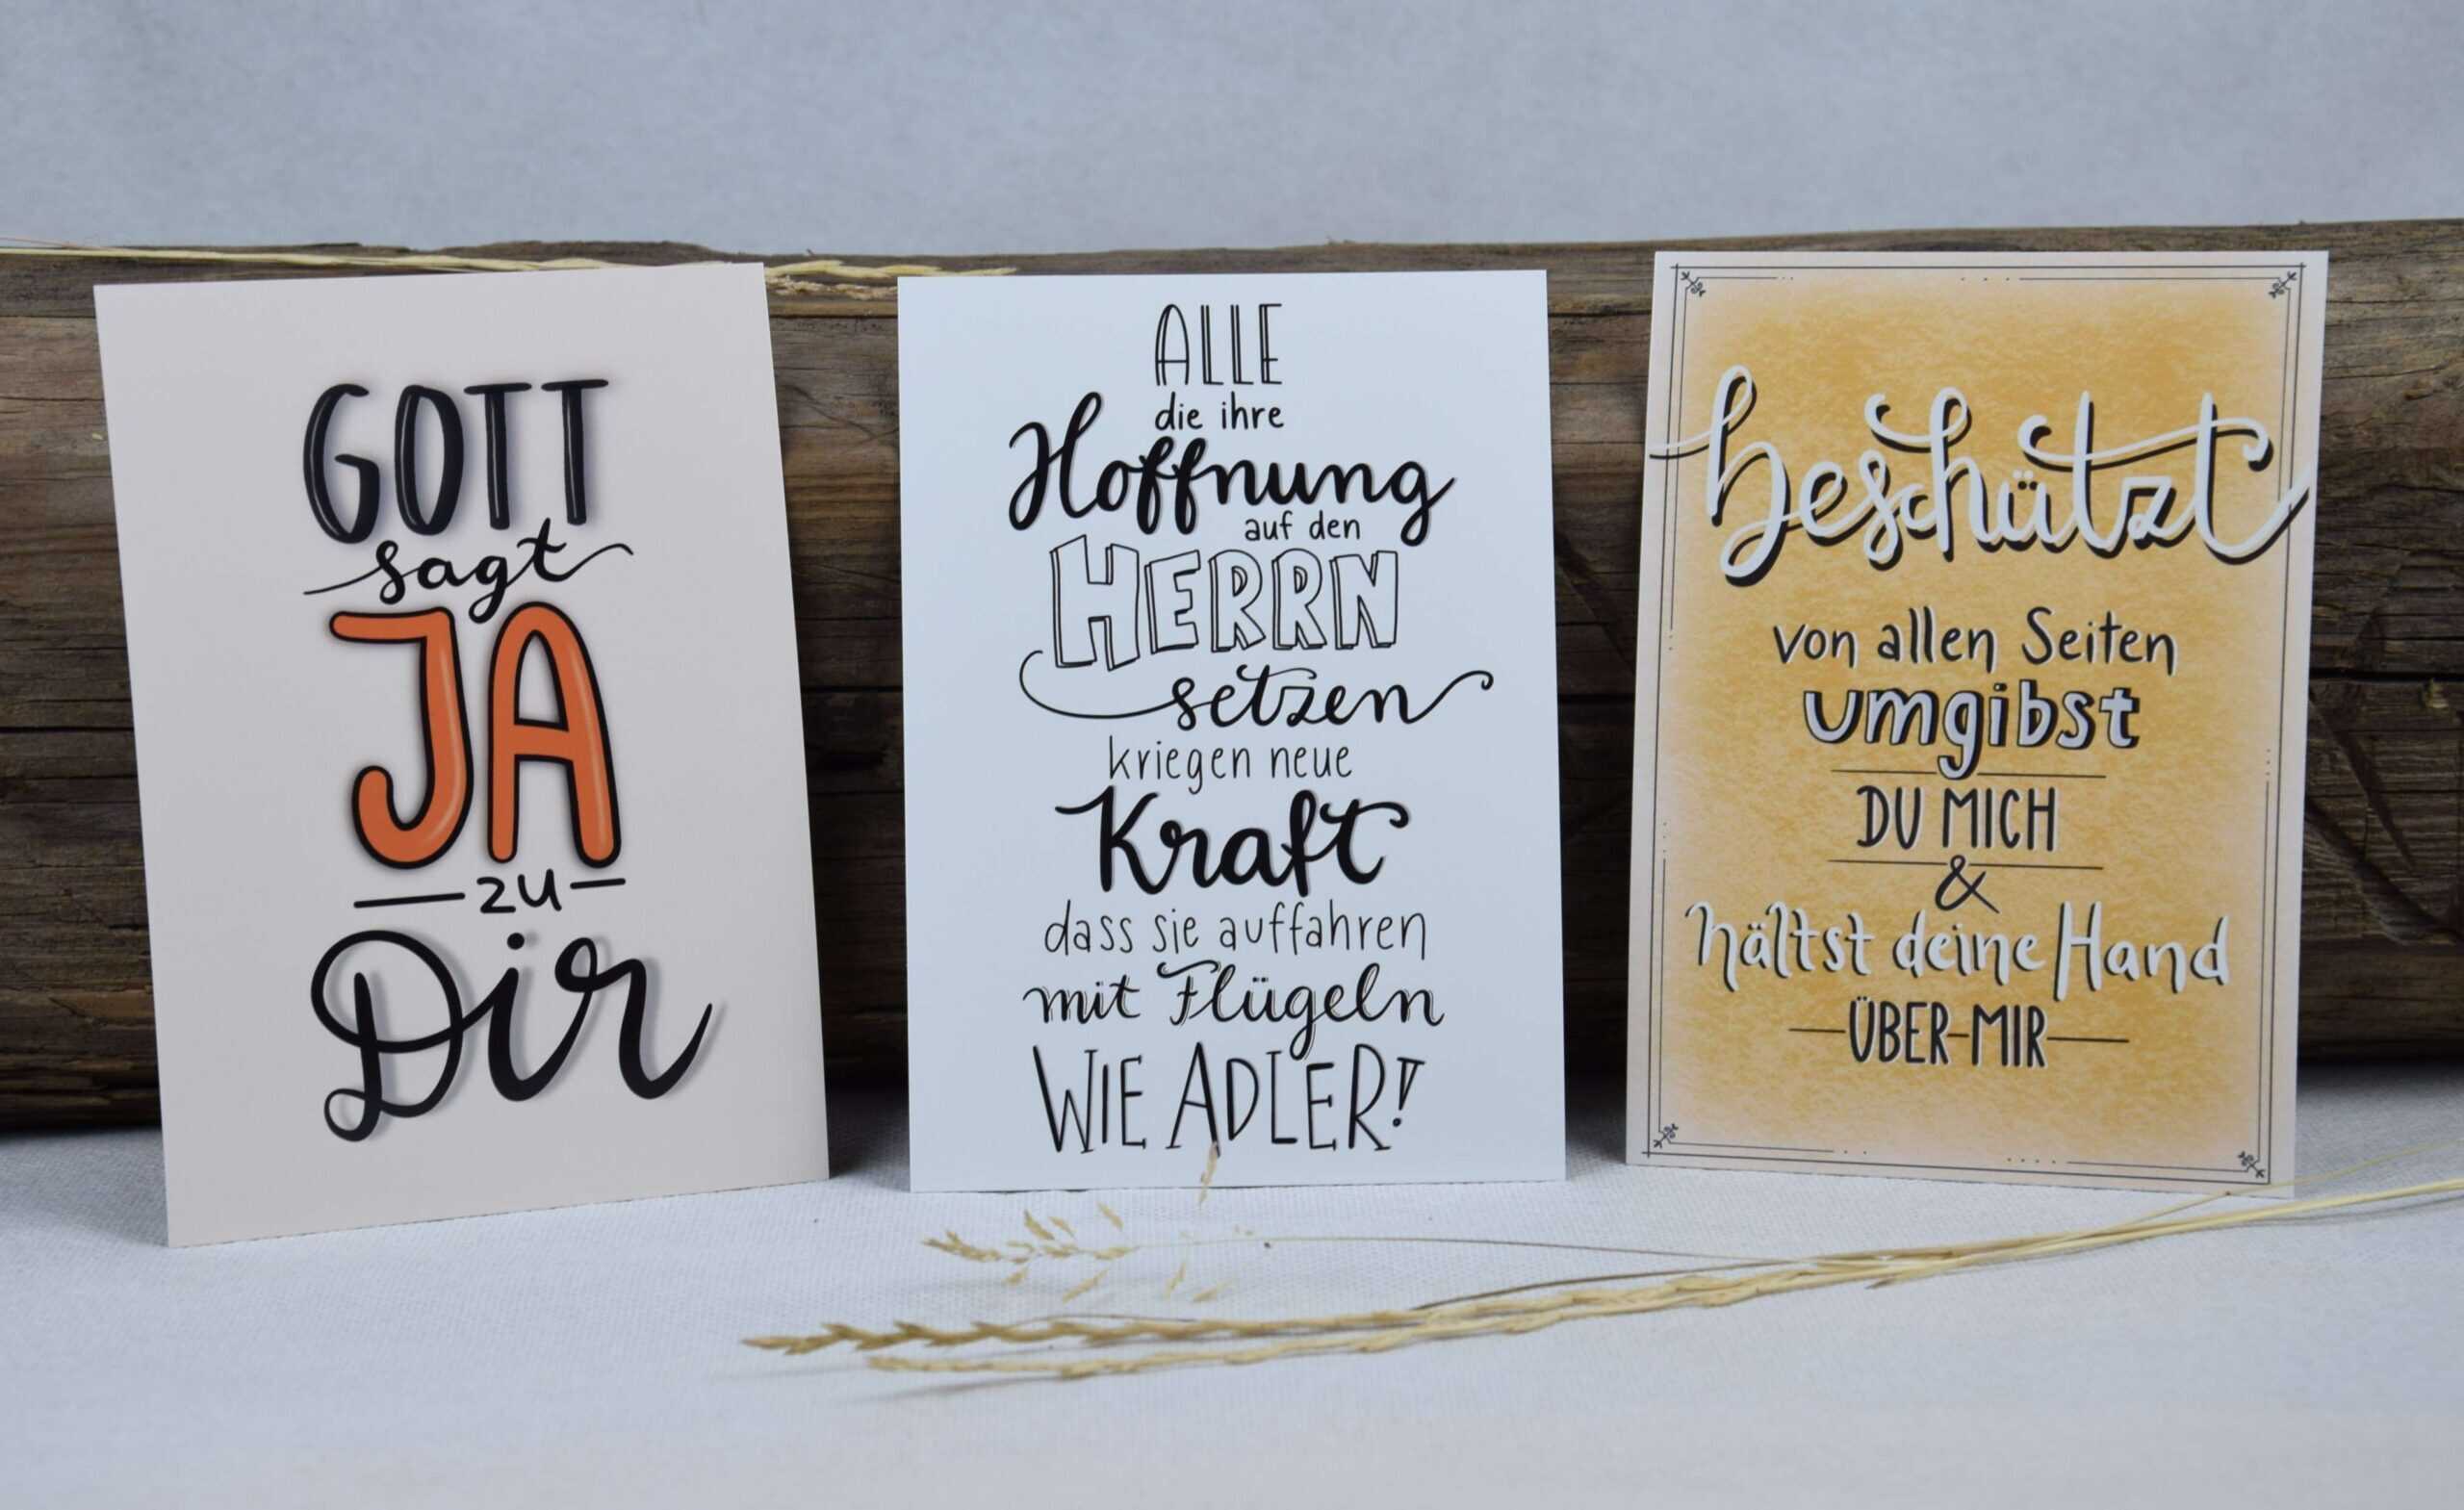 GOTT
sagt
JA
zu
Dir
ALLE
die ihre
Hoffnung
auf den
HERRN
setzen
kriegen neue
Kraft
dass sie auffahren
mit Flügeln
WIE ADLER!
beschützt
von allen Seiten
umgibst
DU MICH
&
hältst deine Hand
ÜBER MIR